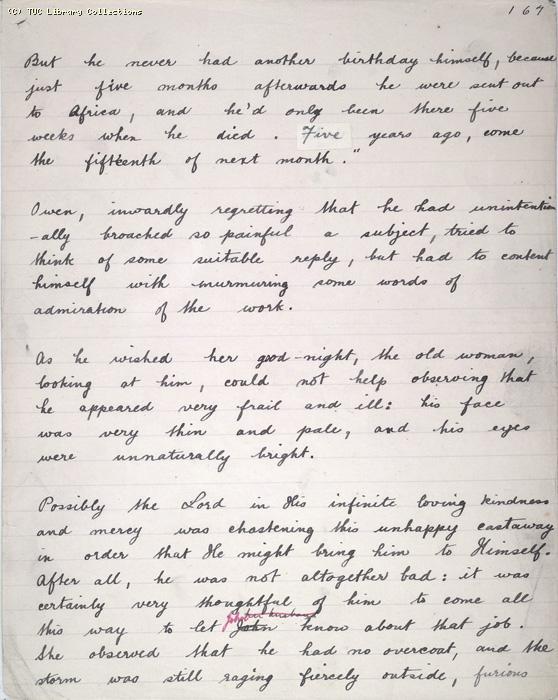 (C) TUC Library Collections
167
But he never had another birthday himself, because
just five months afterwards he were sent out
to Africa, and he'd only been there five
weeks when he died. Five years ago, come
the fifteenth of next month."
Owen, inwardly regretting that he had unintention
-ally broached so painful a subject, tried to
think of some suitable reply, but had to content
himself with murmuring some words of
admiration of the work.
As he wished her good-night, the old woman,
looking at him, could not help observing that
he appeared very frail and ill: his face
was very thin and pale, and his eyes
were unnaturally bright.
Possibly the Lord in His infinite loving kindness
and mercy was chastening this unhappy castaway
in order that He might bring him to Himself.
After all, he was not altogether bad: it was
certainly very thoughtful of him to come all
John her husband
this way to let John know about that job.
She observed that he had no overcoat, and the
storm was still raging fiercely outside, furious